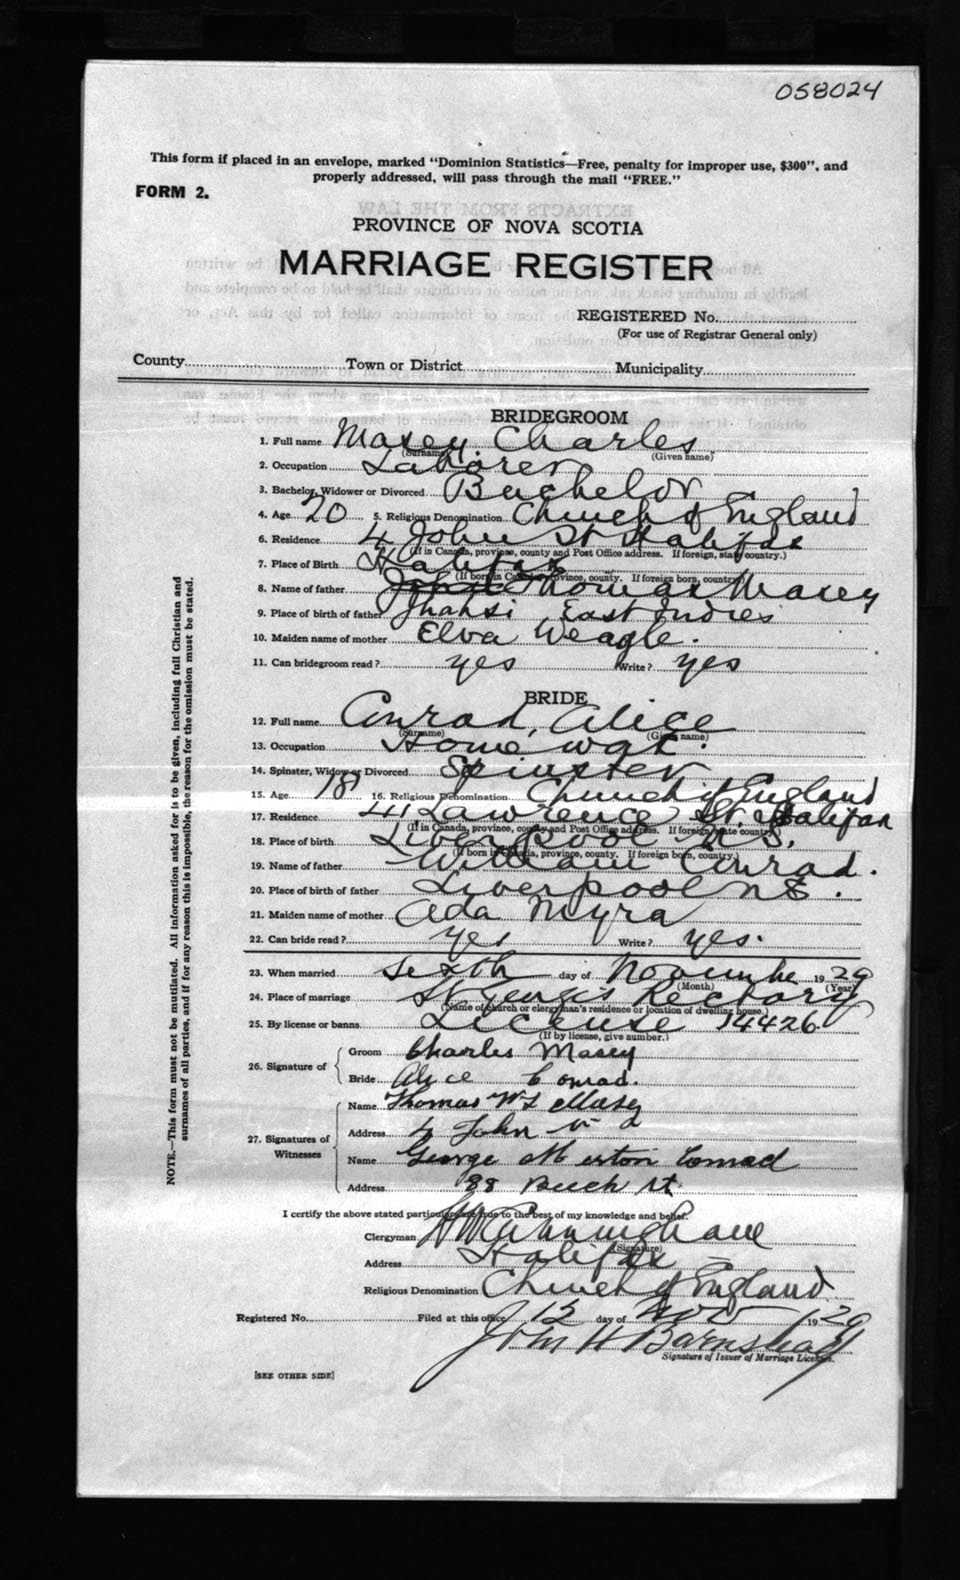 058024
This form if placed in an envelope, marked "Dominion Statistics—Free, penalty for improper use, $300", and
properly addressed, will pass through the mail "FREE."
FORM 2.
PROVINCE OF NOVA SCOTIA
MARRIAGE REGISTER
REGISTERED No.
(For use of Registrar General only)
County Town or District Municipality
BRIDEGROOM
1. Full name Masey, Charles
(Surname) (Given name)
2. Occupation Laborer
3. Bachelor, Widower or Divorced Bachelor
4. Age 20 5. Religious Denomination Church of England
6. Residence 4 John St Halifax
(If in Canada, province, county and Post Office address. If foreign, state country.)
7. Place of Birth Halifax
(If born in Canada, province, county. If foreign born, country)
8. Name of father Thomas Masey
9. Place of birth of father Jhansi East Indies
10. Maiden name of mother Elva Weagle.
11. Can bridegroom read? yes Write? yes
BRIDE
12. Full name Conrad, Alice
(Surname) (Given name)
13. Occupation Home wok.
14. Spinster, Widow or Divorced Spinster
15. Age 18 16. Religious Denomination Church of England
17. Residence 41 Lawrence St. Halifax
(If in Canada, province, county and Post Office address. If foreign, state country)
18. Place of birth Liverpool N.S.
(If born in Canada, province, county. If foreign born, country.)
19. Name of father William Conrad.
20. Place of birth of father Liverpool NS.
21. Maiden name of mother Ada Myra
22. Can bride read? yes Write? yes.
23. When married Sixth day of November 1929
(Month) (Year)
24. Place of marriage St George's Rectory
(Name of church or clergyman's residence or location of dwelling house.)
25. By license or banns License 14426
(If by license, give number.)
26. Signature of Groom Charles Masey
Bride Alice Conrad.
27. Signatures of Witnesses
Name Thomas Masey
Address 4 John
Name George Merton Conrad
Address 88 Beech St.
I certify the above stated particulars are true to the best of my knowledge and belief.
Clergyman Cunningham
(Signature)
Address Halifax
Religious Denomination Church of England
Registered No. Filed at this office 15 day of Nov 1929
John H Barnstead
Signature of Issuer of Marriage License.
[SEE OTHER SIDE]
NOTE.—This form must not be mutilated. All information asked for is to be given, including full Christian and
surnames of all parties, and if for any reason this is impossible, the reason for the omission must be stated.